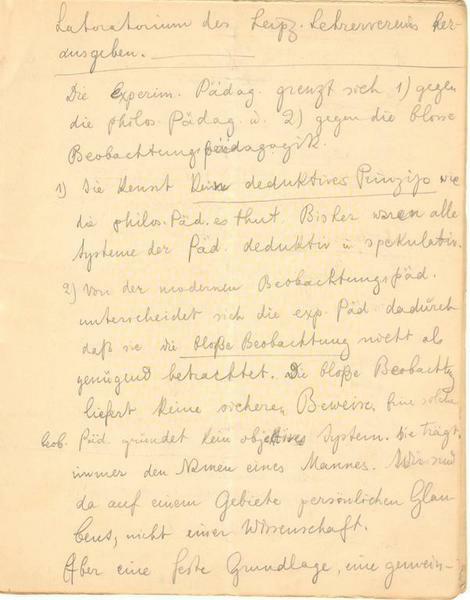 Laboratorium des Leipz. Lehrervereins her-
ausgeben.
Die Experim. Pädag. grenzt sich 1) gegen
die philos. Pädag. u. 2) gegen die blosse
Beobachtungspädagogik.
1) Sie kennt kein deduktives Prinzip wie
die philos. Päd. es thut. Bisher waren alle
Systeme der Päd. deduktiv u. spekulativ.
2) Von der modernen Beobachtungspäd.
unterscheidet sich die exp. Päd. dadurch
daß sie die bloße Beobachtung nicht als
genügend betrachtet. Die bloße Beobachtg
liefert keine sicheren Beweise. Eine solche
Beob. Päd. gründet kein objektives System. Sie trägt
immer den Namen eines Mannes. Wir sind
da auf einem Gebiete persönlichen Glau-
bens, nicht einer Wissenschaft.
Aber eine feste Grundlage, eine gemein-